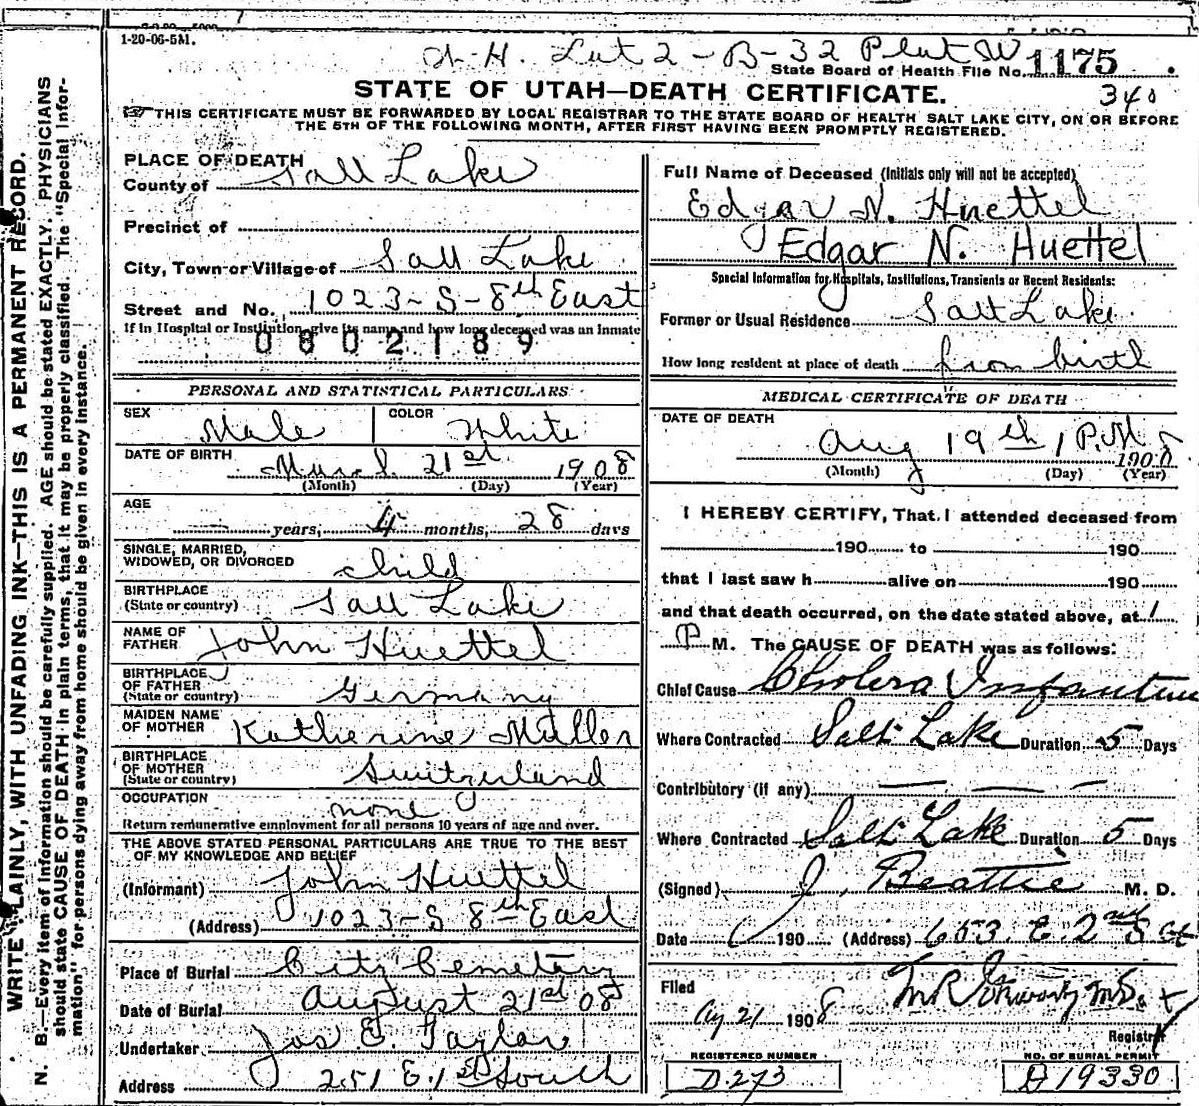 1-20-06-5M.
Lot 2-B-32 Plat W
State Board of Health File No. 1175
340
STATE OF UTAH—DEATH CERTIFICATE.
THIS CERTIFICATE MUST BE FORWARDED BY LOCAL REGISTRAR TO THE STATE BOARD OF HEALTH SALT LAKE CITY, ON OR BEFORE
THE 5TH OF THE FOLLOWING MONTH, AFTER FIRST HAVING BEEN PROMPTLY REGISTERED.
WRITE PLAINLY, WITH UNFADING INK—THIS IS A PERMANENT RECORD.
N. B.—Every item of information should be carefully supplied. AGE should be stated EXACTLY. PHYSICIANS
should state CAUSE OF DEATH in plain terms, that it may be properly classified. The "Special Infor-
mation" for persons dying away from home should be given in every instance.
PLACE OF DEATH
County of Salt Lake
Precinct of
City, Town or Village of Salt Lake
Street and No. 1023-S-8th East
If in Hospital or Institution give its name and how long deceased was an inmate
0802189
PERSONAL AND STATISTICAL PARTICULARS
SEX Male COLOR White
DATE OF BIRTH March 21st 1908
(Month) (Day) (Year)
AGE
— years, 4 months, 28 days
SINGLE, MARRIED,
WIDOWED, OR DIVORCED child
BIRTHPLACE
(State or country) Salt Lake
NAME OF
FATHER John Huettel
BIRTHPLACE
OF FATHER
(State or country) Germany
MAIDEN NAME
OF MOTHER Katherine Müller
BIRTHPLACE
OF MOTHER
(State or country) Switzerland
OCCUPATION none
Return remunerative employment for all persons 10 years of age and over.
THE ABOVE STATED PERSONAL PARTICULARS ARE TRUE TO THE BEST
OF MY KNOWLEDGE AND BELIEF
(Informant) John Huettel
(Address) 1023-S 8th East
Place of Burial City Cemetery
Date of Burial August 21st 08
Undertaker Jos E. Taylor
Address 251 E. 1st South
Full Name of Deceased (Initials only will not be accepted)
Edgar N. Huettel
Edgar N. Huettel
Special Information for Hospitals, Institutions, Transients or Recent Residents:
Former or Usual Residence Salt Lake
How long resident at place of death from birth
MEDICAL CERTIFICATE OF DEATH
DATE OF DEATH
Aug 19th 1 P.M. 1908
(Month) (Day) (Year)
I HEREBY CERTIFY, That I attended deceased from
190 to 190
that I last saw h alive on 190
and that death occurred, on the date stated above, at 1
P M. The CAUSE OF DEATH was as follows:
Chief Cause Cholera Infantum
Where Contracted Salt Lake Duration 5 Days
Contributory (if any) — — —
Where Contracted Salt Lake Duration 5 Days
(Signed) J. Beattie M. D.
Date 190 (Address) 653. E. 2nd S St
Filed
Aug 21 1908
Registrar
REGISTERED NUMBER
D.273
NO. OF BURIAL PERMIT
D 19330